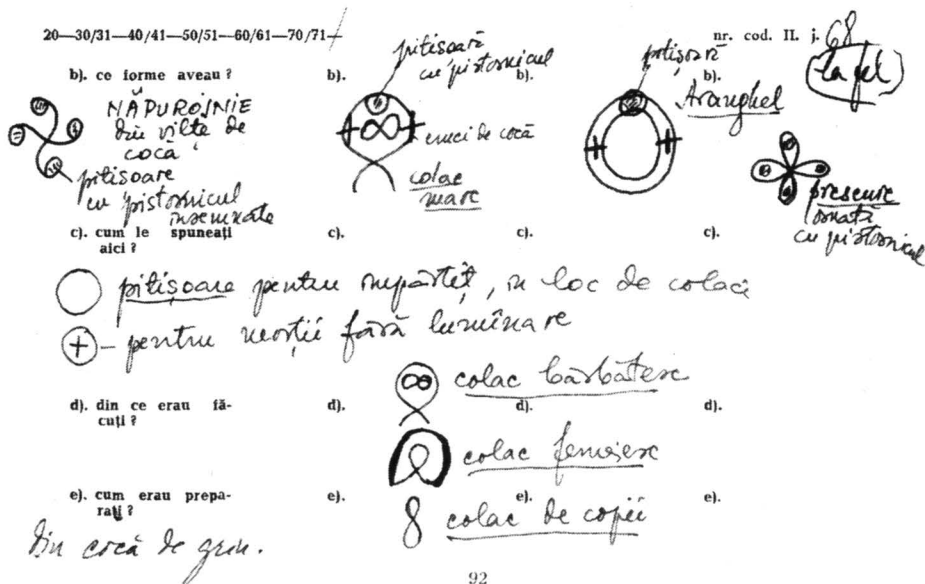 20—30/31—40/41—50/51—60/61—70/71—
nr. cod. II. j. 68
la fel
b). ce forme aveau ?
b).
b).
b).
NĂPUROJNIE
din vilte de
cocă
pitisoare
cu pistornicul
insemnate
pitisoară
cu pistornicul
cruci de cocă
colac
mare
pitişoară
Aranghel
prescure
ornată
cu pistornicul
c). cum le spuneaţi
aici ?
c).
c).
c).
pitişoare pentru împărţit, în loc de colaci
pentru morţii fără lumînare
d). din ce erau fă-
cuţi ?
d).
d).
d).
colac bărbătesc
colac femeiesc
e). cum erau prepa-
raţi ?
e).
e).
e).
colac de copii
Din cocă de grîu.
92